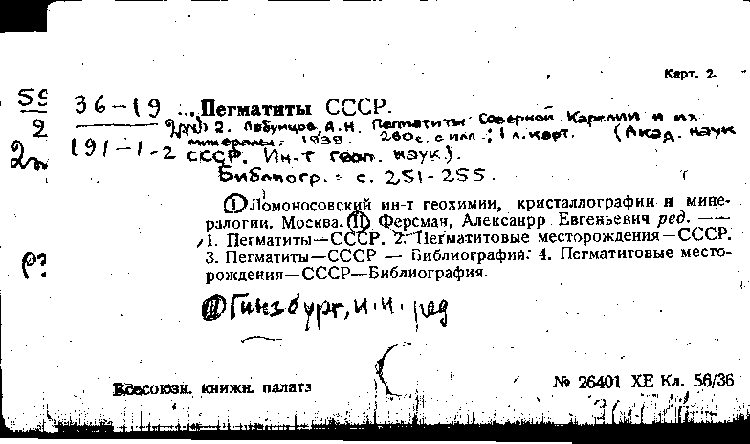 Карт. 2.
36-19 Пегматиты СССР.
2. Лабунцов, А.Н. Пегматиты Северной Карелии и их
минералы. 1939. 260 с. с илл.; 1 л. карт. (Акад. наук
191-1-2 СССР. Ин-т геол. наук).
Библиогр.: с. 251-255.
I Ломоносовский ин-т геохимии, кристаллографии и мине-
ралогии. Москва. II Ферсман, Александр Евгеньевич ред. —
1. Пегматиты—СССР. 2. Пегматитовые месторождения—СССР.
3. Пегматиты—СССР — Библиография. 4. Пегматитовые место-
рождения—СССР—Библиография.
III Гинзбург, И.И. ред
Всесоюзн. книжн. палата
№ 26401 XE Кл. 56/36